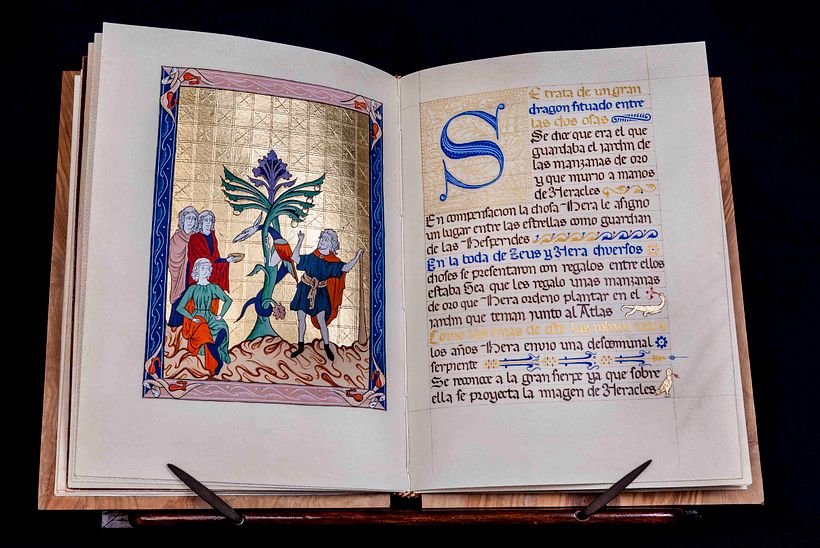 Se trata de un gran
dragon situado entre
las dos osas
Se dice que era el que
guardaba el jardin de
las manzanas de oro
y que murio a manos
de Heracles
En compensacion la diosa Hera le asigno
un lugar entre las estrellas como guardian
de las Hesperides
En la boda de Zeus y Hera diversos
dioses se presentaron con regalos entre ellos
estaba Gea que les regalo unas manzanas
de oro que Hera ordeno plantar en el
jardin que tenian junto al Atlas
Como las hijas de este las robaba todos
los años Hera envio una descomunal
serpiente
Se reconoce a la gran sierpe ya que sobre
ella se proyecta la imagen de Heracles